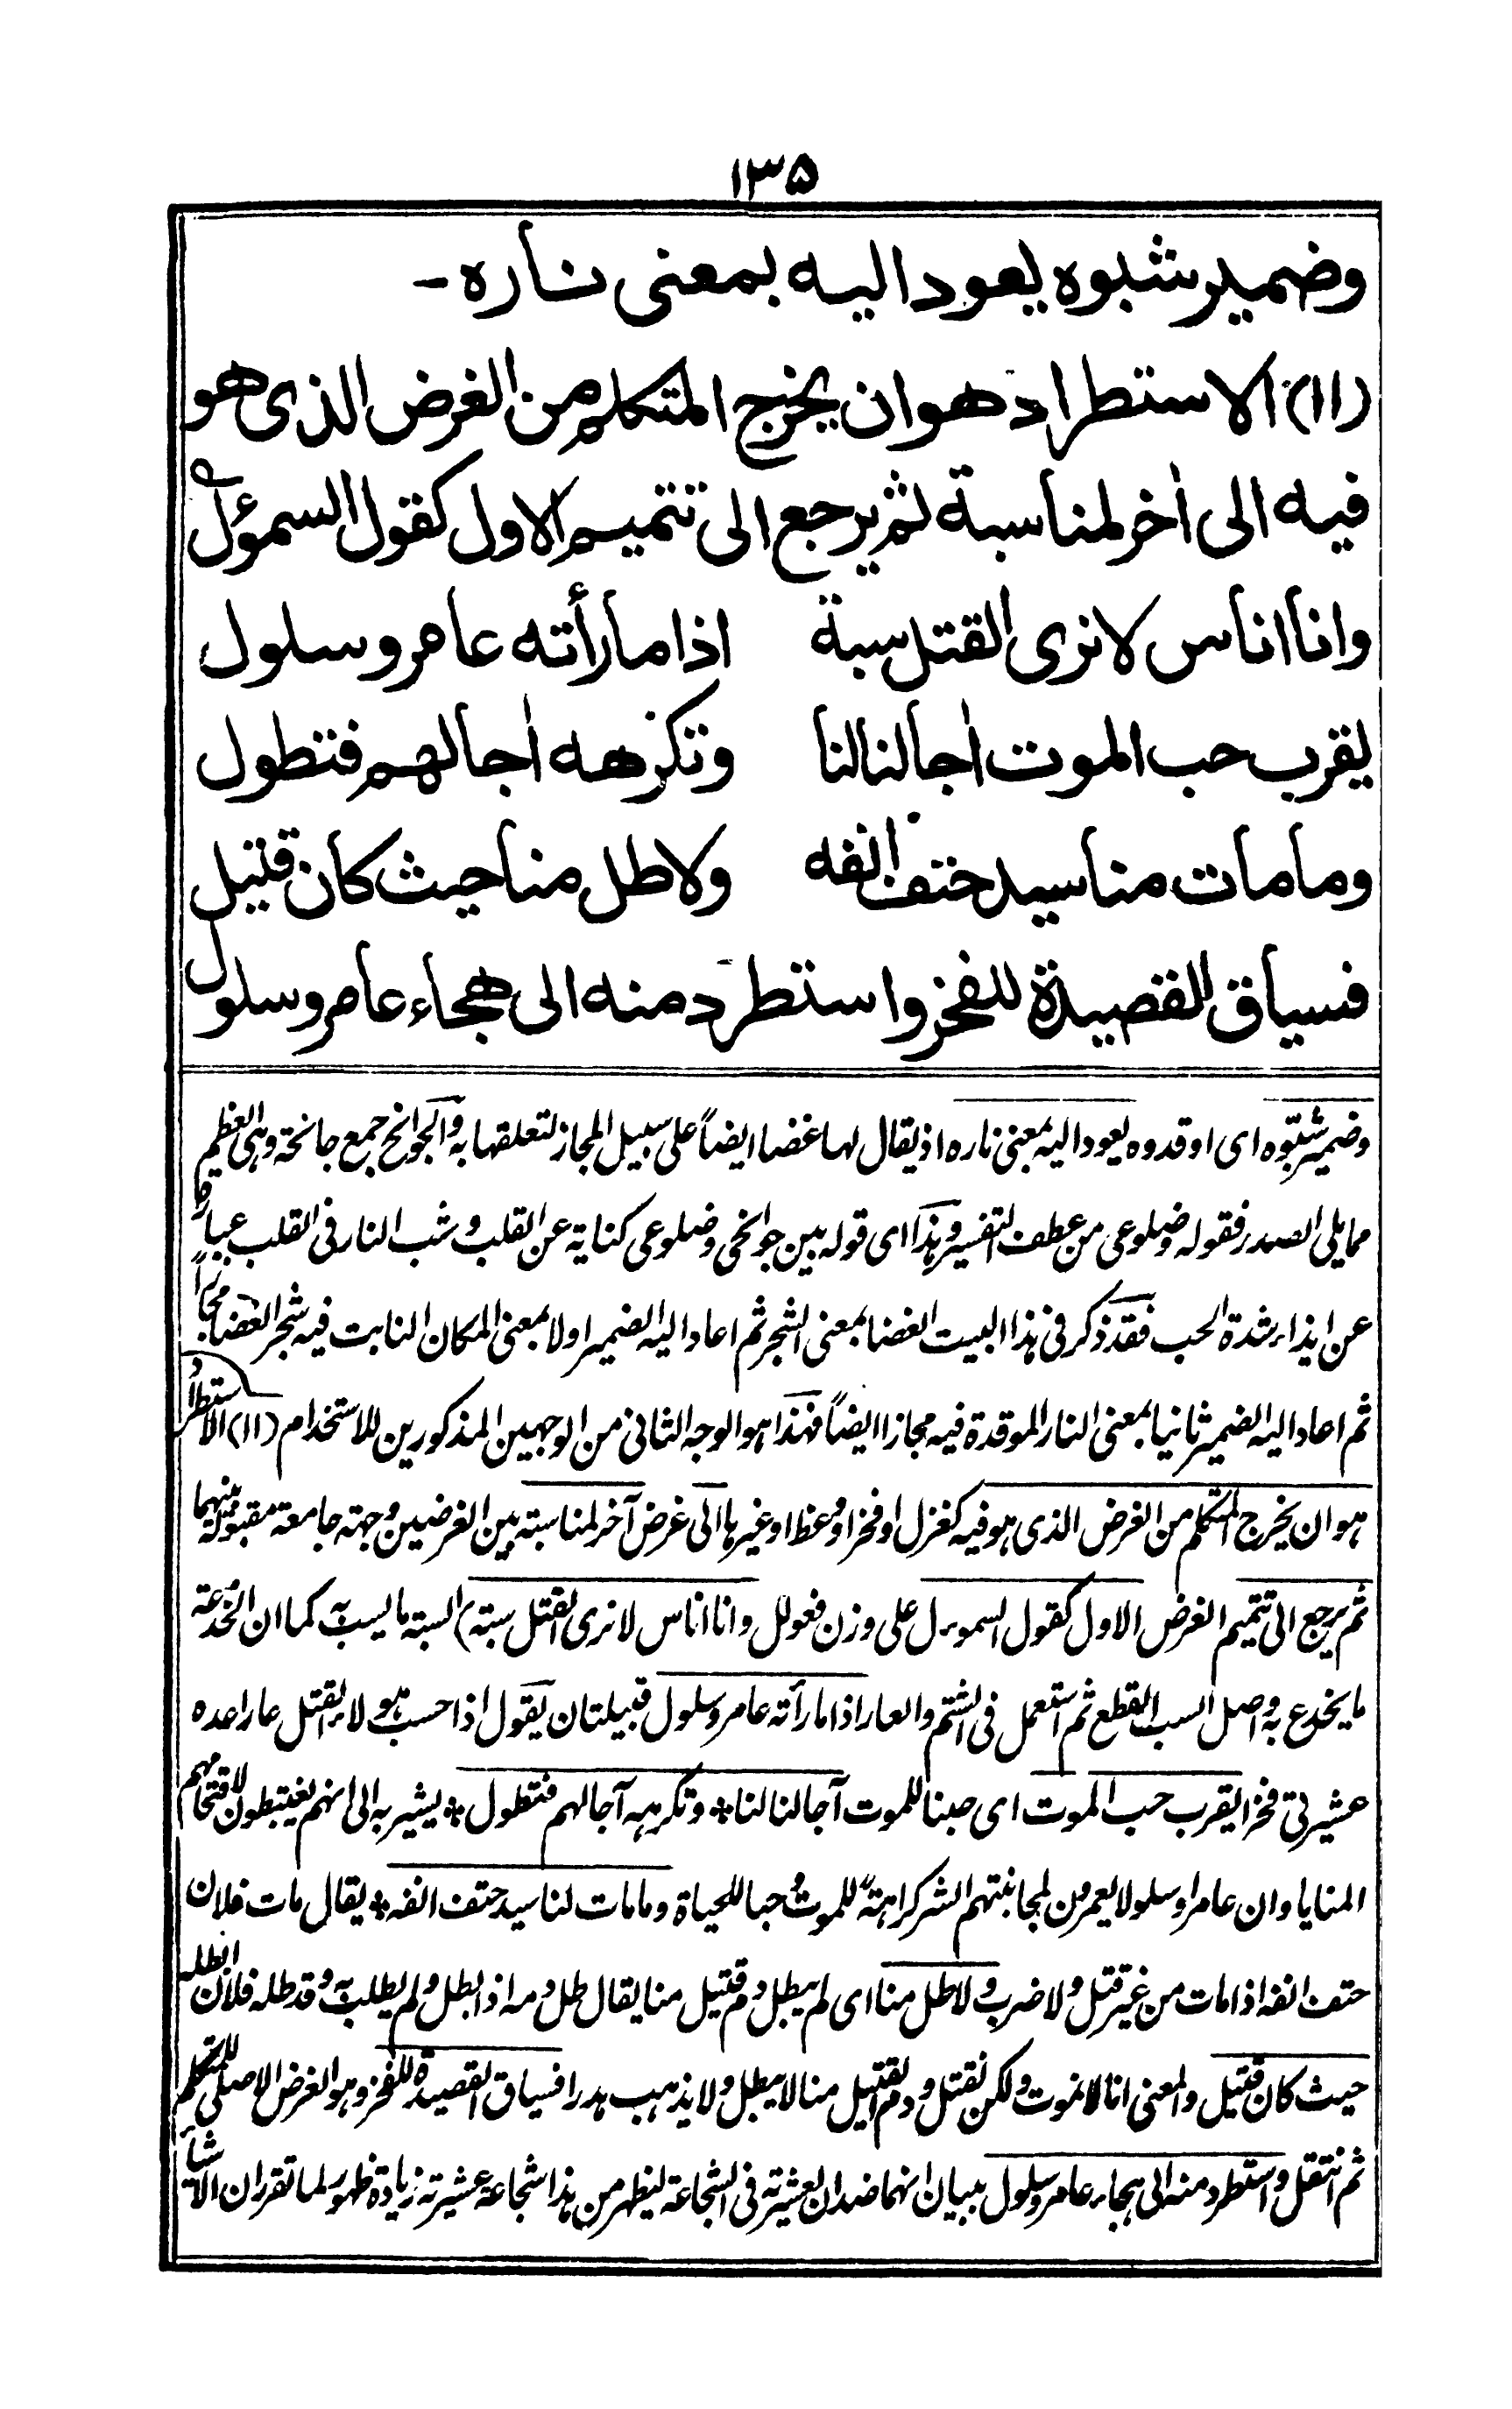 ١٣٥
وضمير شبوه يعود اليه بمعنى ناره -
(١١) الاستطراد هو ان يخرج المتكلم من الغرض الذى هو
فيه الى اٰخر لمناسبة ثم يرجع الى تتميم الاول كقول السموئل
وانا اناس لا نرى القتل سبة اذا ما رأته عامر وسلول
يقرب حب الموت اٰجالنا لنا وتكرهه اٰجالهم فتطول
وما مات منا سيد حتف انفه ولا طل منا حيث كان قتيل
فسياق القصيدة للفخر واستطرد منه الى هجاء عامر وسلول
وضمير شبّوه اى اوقدوه يعود اليه بمعنى ناره اذ يقال لها غضا ايضاً على سبيل المجاز لتعلقها به والجوانح جمع جانحة وهى العظم
مما يلى الصدر فقوله وضلوعى من عطف التفسير وهذا اى قوله بين جوانحى وضلوعى كناية عن القلب وشب النار فى القلب عبارة
عن ايذاء شدة الحب فقد ذكر فى هذا البيت الغضا بمعنى الشجر ثم اعاد اليه الضمير اولا بمعنى المكان النابت فيه شجر الغضا مجازاً
ثم اعاد اليه الضمير ثانيا بمعنى النار الموقدة فيه مجازا ايضاً فهذا هو الوجه الثانى من الوجهين المذكورين للاستخدام (١١) الاستطراد
هو ان يخرج المتكلم من الغرض الذى هو فيه كغزل او فخر او وعظ او غيرها الى غرض آخر لمناسبته بين الغرضين وجهته جامعة مقبولة بينهما
ثم يرجع الى تتميم الغرض الاول كقول السموءل على وزن فعولل وانا اناس لا نرى القتل سبة) السبة ما يسب به كما ان الخدعة
ما يخدع به واصل السب القطع ثم استعمل فى الشتم والعار اذا ما رأته عامر وسلول قبيلتان يقول اذا حسب هؤلاء القتل عارا عده
عشيرتى فخرا يقرب حب الموت اى حبنا للموت آجالنا لنا * وتكرهه آجالهم فتطول * يشير به الى انهم يغتبطون لاقتحامهم
المنايا وان عامرا وسلولا يعمرون لمجانبتهم الشر كراهةً للموت وحبا للحياة وما مات لنا سيد حتف انفه * يقال مات فلان
حتف انفه اذا مات من غير قتل ولا ضرب ولا طل منا اى لم يطل دم قتيل منا يقال طل دمه اذا بطل ولم يطلب به وقد طله فلان ابطله
حيث كان قتيل والمعنى انا لا نموت ولكن نقتل ودم القتيل منا لا يبطل ولا يذهب هدرا فسياق القصيدة للفخر وهو الغرض الاصلى للمتكلم
ثم انتقل واستطرد منه الى هجاء عامر وسلول ببيان انهما ضدان لعشيرته فى الشجاعة ليظهر من هذا شجاعة عشيرته زيادة ظهور لما تقرر ان الاشياء